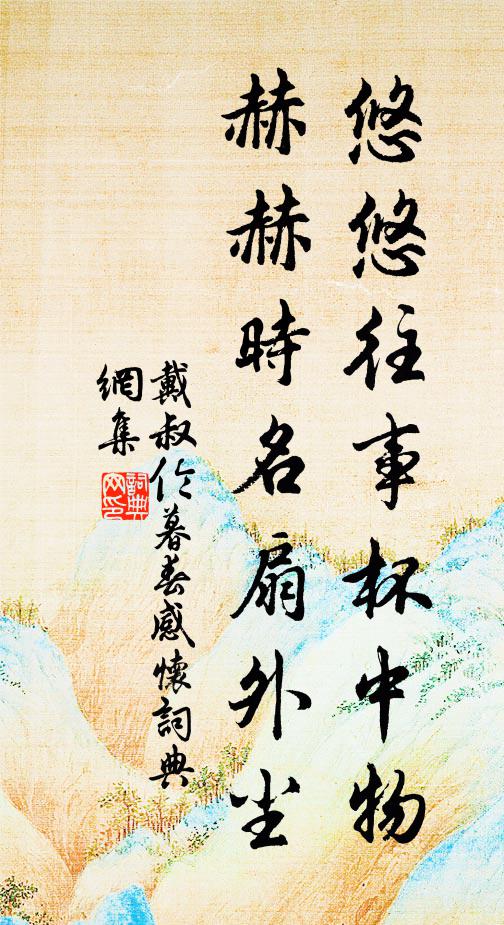 悠悠往事杯中物
赫赫時名扇外尘
戴叔伦暮春感懷詞典
網集
詞典
网印